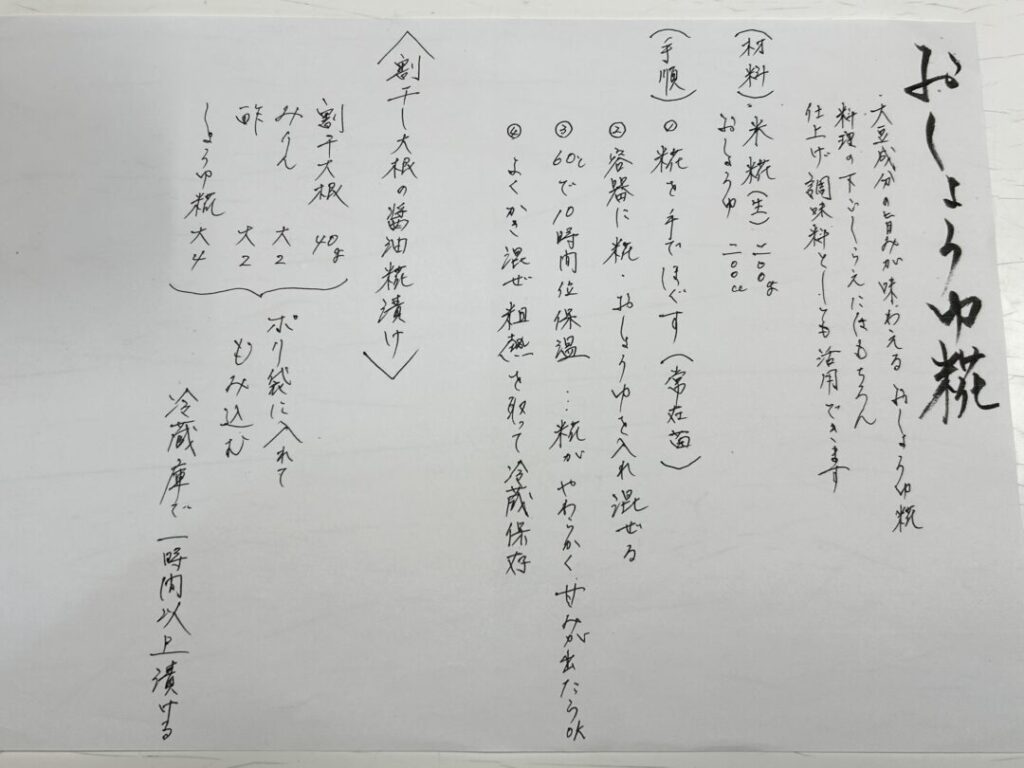 おしょうゆ糀
大豆成分の旨みが味わえるおしょうゆ糀
料理の下ごしらえにはもちろん
仕上げ調味料としても活用できます
(材料)・米糀(生) 二〇〇g
おしょうゆ 二〇〇cc
(手順) ① 糀を手でほぐす(常在菌)
② 容器に糀・おしょうゆを入れ混ぜる
③ 60℃で10時間位保温…糀がやわらかく甘みが出たらOK
④ よくかき混ぜ粗熱を取って冷蔵保存
〈割干し大根の醤油糀漬け〉
割干大根 40g
みりん 大2
酢 大2
しょうゆ糀 大4
ポリ袋に入れて
もみ込む
冷蔵庫で一時間以上漬ける